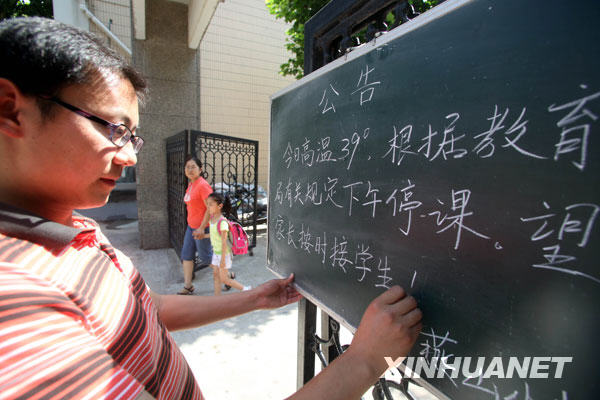 公告
今日高温39°，根据教育
局有关规定下午停课。望
家长按时接学生！
燕
XINHUANET